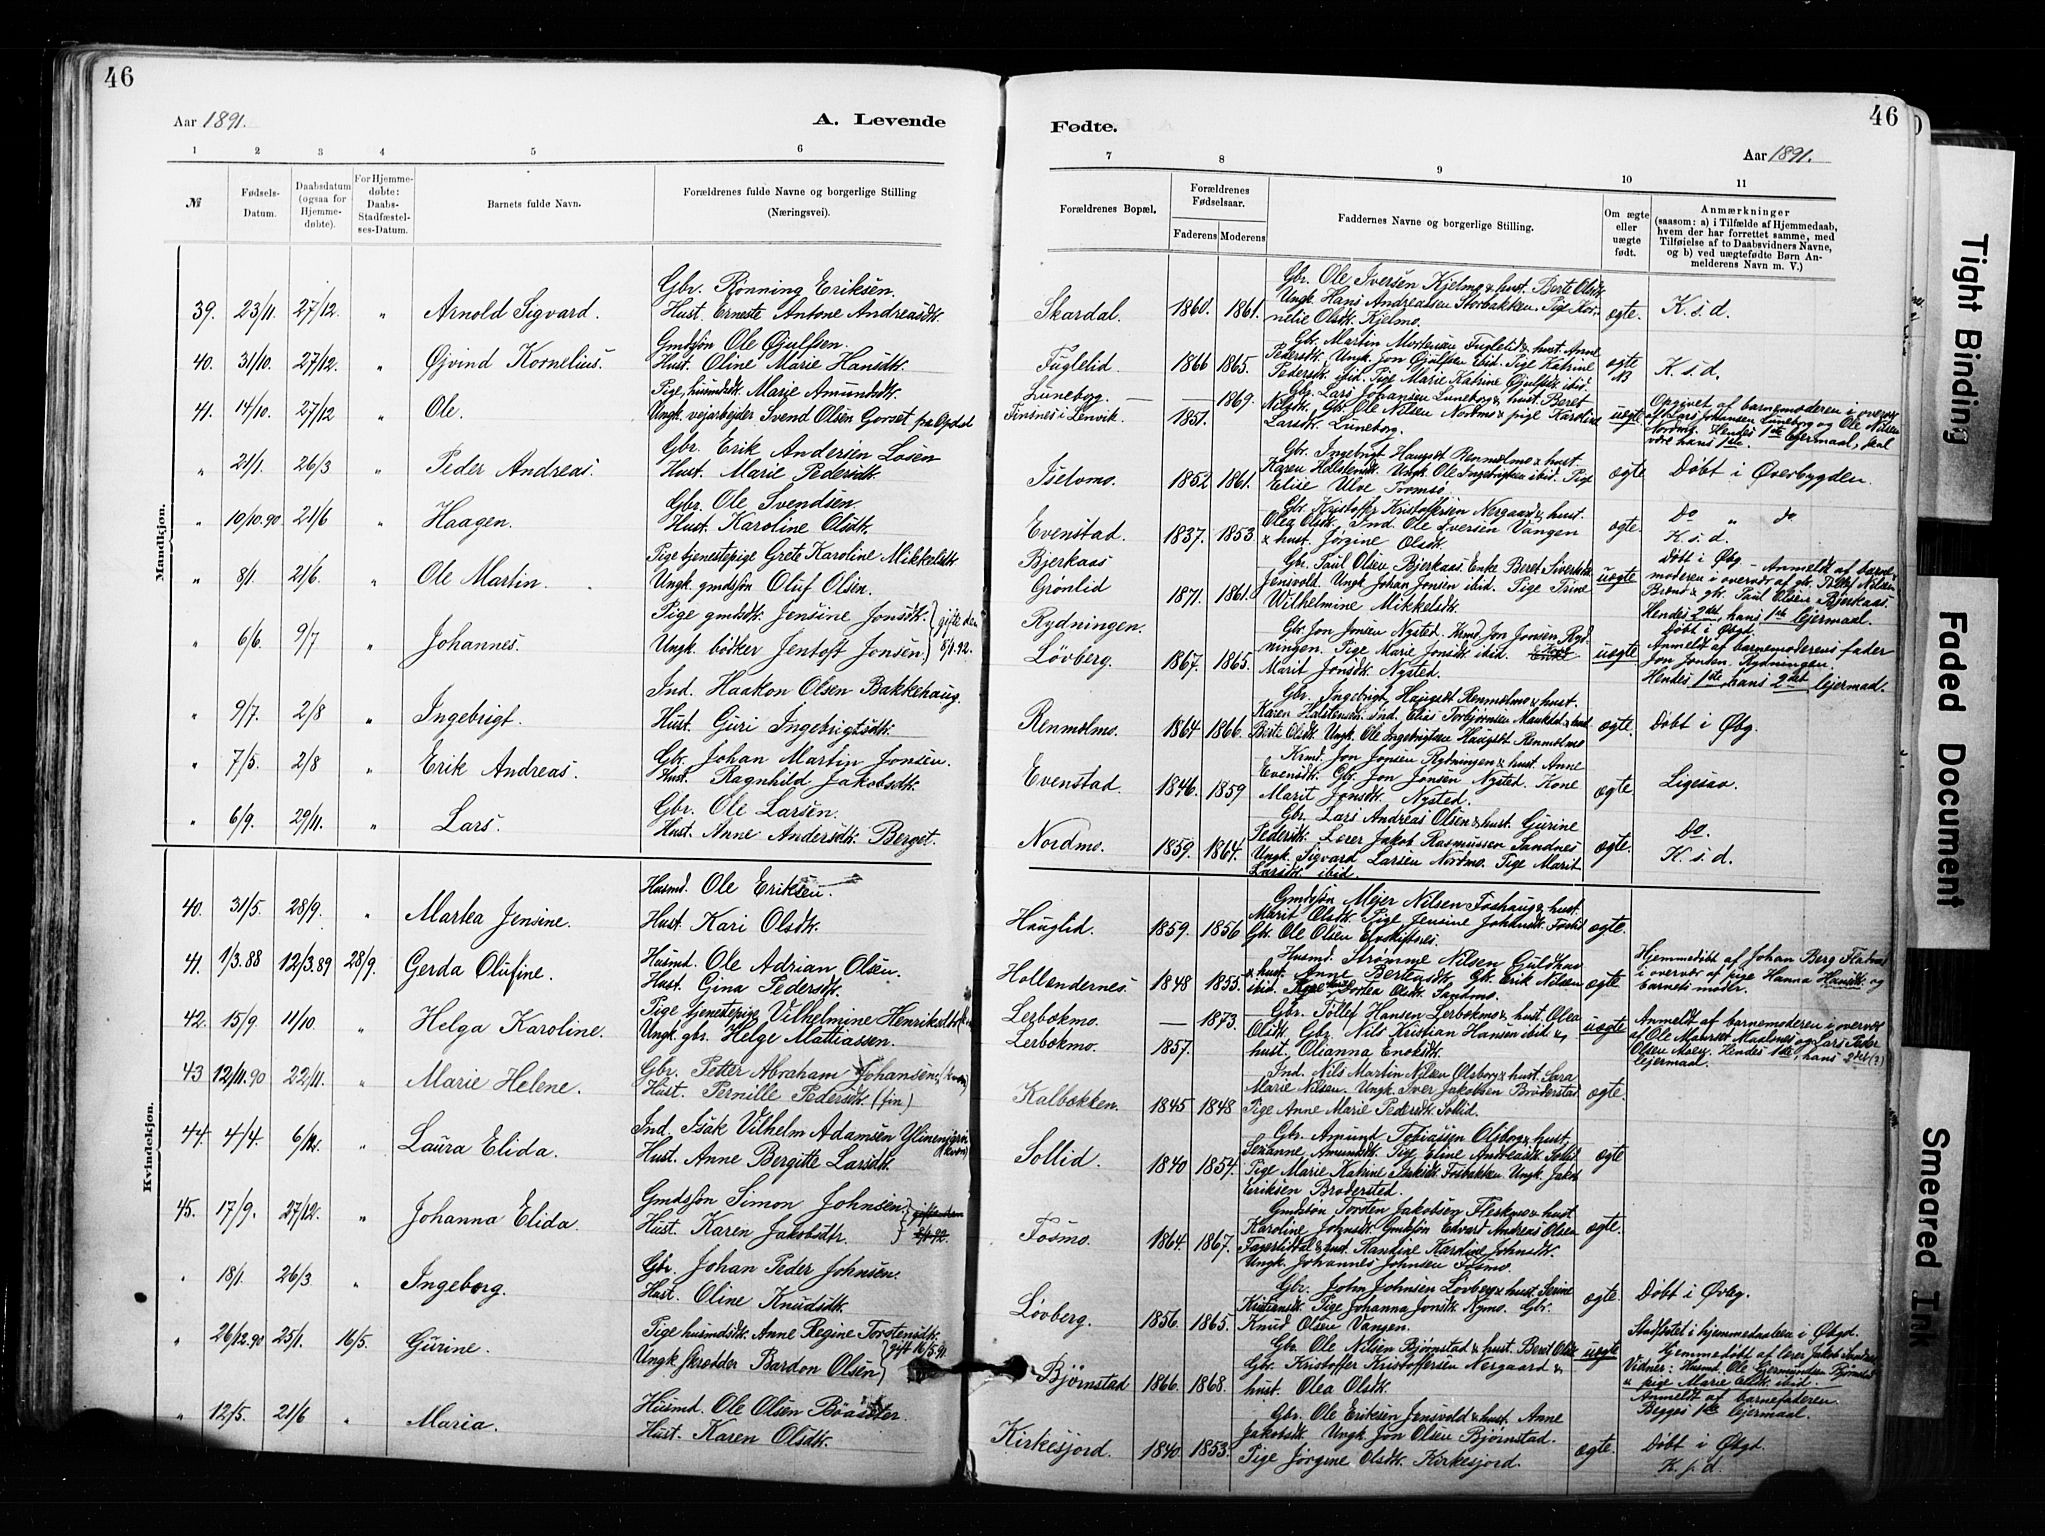 46
Aar 1891.
A. Levende
1 2 3 4 5 6
№
Fødsels-
Datum.
Daabsdatum
(ogsaa for
Hjemme-
døbte).
For Hjemme-
døbte:
Daabs-
Stadfæstel-
ses-Datum.
Barnets fulde Navn.
Forældrenes fulde Navne og borgerlige Stilling
(Næringsvei).
Mandkjøn.
Gbr. Rønning Eriksen.
39. 23/11. 27/12. " Arnold Sigvard. Hust. Erneste Antone Andreasdtr.
Gmdsøn Ole Øjulfsen.
40. 31/10. 27/12. " Øjvind Kornelius. Hust. Oline Marie Hansdtr.
Pige, husmdsdtr. Marie Amundsdtr.
41. 14/10. 27/12 " Ole. Ungk. vejarbejder Svend Olsen Gorset fra Opdal
Gbr. Erik Andersen Løsen
" 21/1. 26/3 " Peder Andreas. Hust. Marie Pedersdtr.
Gbr. Ole Svendsen
" 10/10.90 21/6 " Haagen. Hust. Karoline Olsdtr.
Pige tjenestepige Grete Karoline Mikkelsdtr.
" 8/1. 21/6. " Ole Martin. Ungk gmdsøn Oluf Olsen.
Pige gmdsdtr. Jensine Jonsdtr. } gifte den
" 6/6. 9/7 " Johannes. Ungk. bødker Jentoft Jonsen. } 8/1.92.
Ind. Haakon Olsen Bakkehaug.
" 9/7. 2/8 " Ingebrigt. Hust. Guri Ingebrigtsdtr.
Gbr. Johan Martin Jonsen.
" 7/5. 2/8 " Erik Andreas. Hust. Ragnhild Jakobsdtr.
Gbr. Ole Larsen.
" 6/9. 29/11. " Lars. Hust. Anne Andersdtr. Berget.
Kvindekjøn.
Husmd. Ole Eriksen.
40. 31/5. 28/9. " Martea Jensine. Hust. Kari Olsdtr.
41. 1/3.88 12/3.89 28/9. Gerda Olufine. Husmd. Ole Adrian Olsen.
Hust. Gina Pedersdtr.
42. 15/9. 11/10. " Helga Karoline. Pige tjenestepige Vilhelmine
Ungk. gbr. Helge Mattiassen.
43 12/11.90 22/11. " Marie Helene. Gbr. Petter Abraham Johansen. (kvæn)
Hust. Pernille Pedersdtr. (fin)
44. 4/4. 6/12. " Laura Elida. Ind. Isak Vilhelm Adamsen
Hust. Anne Bergitte Larsdtr. (kvæn)
45. 17/9. 27/12. " Johanna Elida. Gmdsøn Simon Johnsen.
Hust. Karen Jakobsdtr.
" 18/1. 26/3. " Ingeborg. Gbr. Johan Peder Johnsen.
Hust. Oline Knudsdtr.
" 26/12.90 25/1. 16/5. Gurine. Pige husmdsdtr. Anne Regine Torstensdtr.
Ungk. skrædder Bardon Olsen } gift 16/5.91
" 12/5. 21/6 " Maria. Husmd. Ole Olsen
Hust. Karen Olsdtr.
46
Fødte.
Aar 1891.
7 8 9 10 11
Forældrenes Bopæl.
Forældrenes
Fødselsaar.
Faderens Moderens
Faddernes Navne og borgerlige Stilling.
Om ægte
eller
uægte
født.
Anmærkninger
(saasom: a) i Tilfælde af Hjemmedaab,
hvem der har forrettet samme, med
Tilføielse af to Daabsvidners Navne,
og b) ved uægtefødte Børn An-
melderens Navn m. V.)
Gbr. Ole Iversen Kjelmo & hust. Berte Olsdtr.
Skardal. 1860. 1861. Ungk. Hans Andreassen Storbakken. Pige Kor- ægte. K. s. d.
nelie Olsdtr. Kjelmo.
Gbr. Martin Mortensen Fuglelid & hust. Anne
Fuglelid 1866 1865. Pedersdtr. Ungk. Jon Øjulfsen ibid. Pige Katrine ægte K. s. d.
Pedersdtr. ibid. Pige Marie Katrine Øjulfsdtr. ibid. NB
Luneborg. — — 1869. Gbr. Lars Johansen Luneborg & hust. Beret Opgivet af barnemoderen i overvær
Finsnes i Lenvik. 1851. Nilsdtr. Gbr. Ole Nilsen Nordmo & pige Karoline uægte af Lars Johansen Luneborg og Ole Nilsen
Larsdtr. Luneborg. Nordmo. Hendes 1ste lejermaal, skal
være hans 1ste.
Gbr. Ingebrigt Haugset Renmælmo & hust.
Iselvmo. 1852 1861. Karen Halstensdtr. Ungk. Ole Ingebrigtsen ibid. Pige ægte Døbt i Øverbygden.
Elise Ulve Tromsø
Gbr. Kristoffer Kristoffersen Nergaard & hust. Do " do
Evenstad. 1837. 1853 Olea Olsdtr. Ind. Ole Iversen Vangen ægte. K. s. d.
& hust. Jørgine Olsdtr.
Bjerkaas Gbr. Paul Olsen Bjerkaas. Enke Beret Sivertsdtr. Døbt i Øbg. — Anmeldt af barne-
Grønlid 1871. 1861. Jensvold. Ungk Johan Jonsen ibid. Pige Trine uægte moderen i overvær af gbr. Nilsen
Wilhelmine Mikkelsdtr. & gbr. Paul Olsen Bjerkaas.
Hendes 2det, hans 1ste lejermaal.
Rydningen. Gbr. Jon Jonsen Nysted. Krmd. Jon Jonsen Ryd- Døbt i Øbgd.
Løvberg. 1867. 1865. ningen. Pige Marie Jonsdtr. ibid. uægte Anmeldt af barnemoderens fader
Marit Jonsdtr. Nysted. Jon Jonsen. Rydningen.
Hendes 1ste, hans 2det lejermaal.
Gbr. Ingebrigt Haugset Renmælmo & hust.
Renmælmo. 1864 1866. Karen Halstensen. Ind. Elias Torbjørnsen & hust. ægte. Døbt i Øbg.
Berte Olsdtr. Ungk. Ole Ingebrigtsen Haugset Renmælmo
Krmd. Jon Jonsen Rydningen & hust. Anne
Evenstad 1846. 1859 Evensdtr. Gbr. Jon Jonsen Nysted. Kone ægte. Ligesaa.
Marit Jonsdtr. Nysted.
Gbr. Lars Andreas Olsen & hust. Gurine Do.
Nordmo. 1859. 1864. Pedersdtr. Lærer Jakob Rasmussen Sandnes ægte. K. s. d.
Ungk. Sigvard Larsen Nordmo. Pige Marit
Larsdtr. ibid.
Gmdsøn Mejer Nilsen Foshaug & hust.
Hauglid. 1859. 1856 Marit Olsdtr. Pige Jensine Johansdtr. ægte.
Gbr. Ole Olsen Elvskiftnes.
Husmd. Strømme Nilsen Guldhav Hjemmedøbt af Johan Berg
Hollendernes 1848 1855. & hust. Anne Berteusdtr. Gbr. Erik Nilsen ægte i overvær af pige Hanna Hansdtr. og
ibid. Dortea Olsdtr. Sandmo. barnets moder.
Lerbækmo. — 1873. Gbr. Tollef Hansen Lerbækmo & hust. Olea uægte Anmeldt af barnemoderen i overvær
Lerbækmo. 1857. Olsdtr. Gbr. Nils Kristian Hansen ibid & af Ole Maalsnes og Lars Peder
hust. Olianna Enoksdtr. Olsen Moen. Hendes 1ste, hans 2det (?)
lejermaal.
Ind. Nils Martin Nilsen Olsborg & hust. Sara
Kalbækken. 1845 1848 Marie Nilsen. Ungk. Iver Jakobsen Brøderstad ægte.
Pige Anne Marie Pedersdtr. Sollid.
Gbr. Amund Tobiassen Olsborg & hust.
Sollid. 1840 1854. Amundsdtr. Pige Eline Andreasdtr. Sollid ægte
Pige Marie Katrine Fosbakken. Ungk. Jakob
Eriksen Brødersted.
Gmdsøn Torsten Jakobsen Fleskmo & hust
Fosmo. 1864. 1867. Karoline Johnsdtr. Gmdsøn Edvart Andreas Olsen ægte.
Fagerliddal & hust. Randine Kardine Johnsdtr.
Ungk. Johannes Johnsen Fosmo.
Gbr. John Johnsen Løvberg & hust. Serine
Løvberg. 1856. 1865. Kristiansdtr. Pige Johanna Jonsdtr. Nymo. Gbr. ægte. Døbt i Øvbg.
Knud Olsen Vangen.
Gbr. Ole Nilsen Bjørnstad & hust. Beret Olsdtr. uægte Stadfæstet i hjemmedaaben i Øbgd.
Bjørnstad 1866. 1868. Gbr. Kristoffer Kristoffersen Nergaard & Hjemmedøbt af lærer Jakob Sandnes.
hust. Olea Olsdtr. Vidner: Husmd. Ole Gjermundsen Bjørnstad
& pige Marie Olsdtr. ibid.
Anmeldt af barnefaderen.
Begges 1ste lejermaal.
Gbr. Ole Eriksen Jensvold & hust. Anne
Kirkesjord. 1840 1853. Jakobsdtr. Ungk Jon Olsen Bjørnstad. ægte. Døbt i Øbgd.
Pige Jørgine Olsdtr. Kirkesjord. K. s. d.
Tight Binding
Faded Document
Smeared Ink